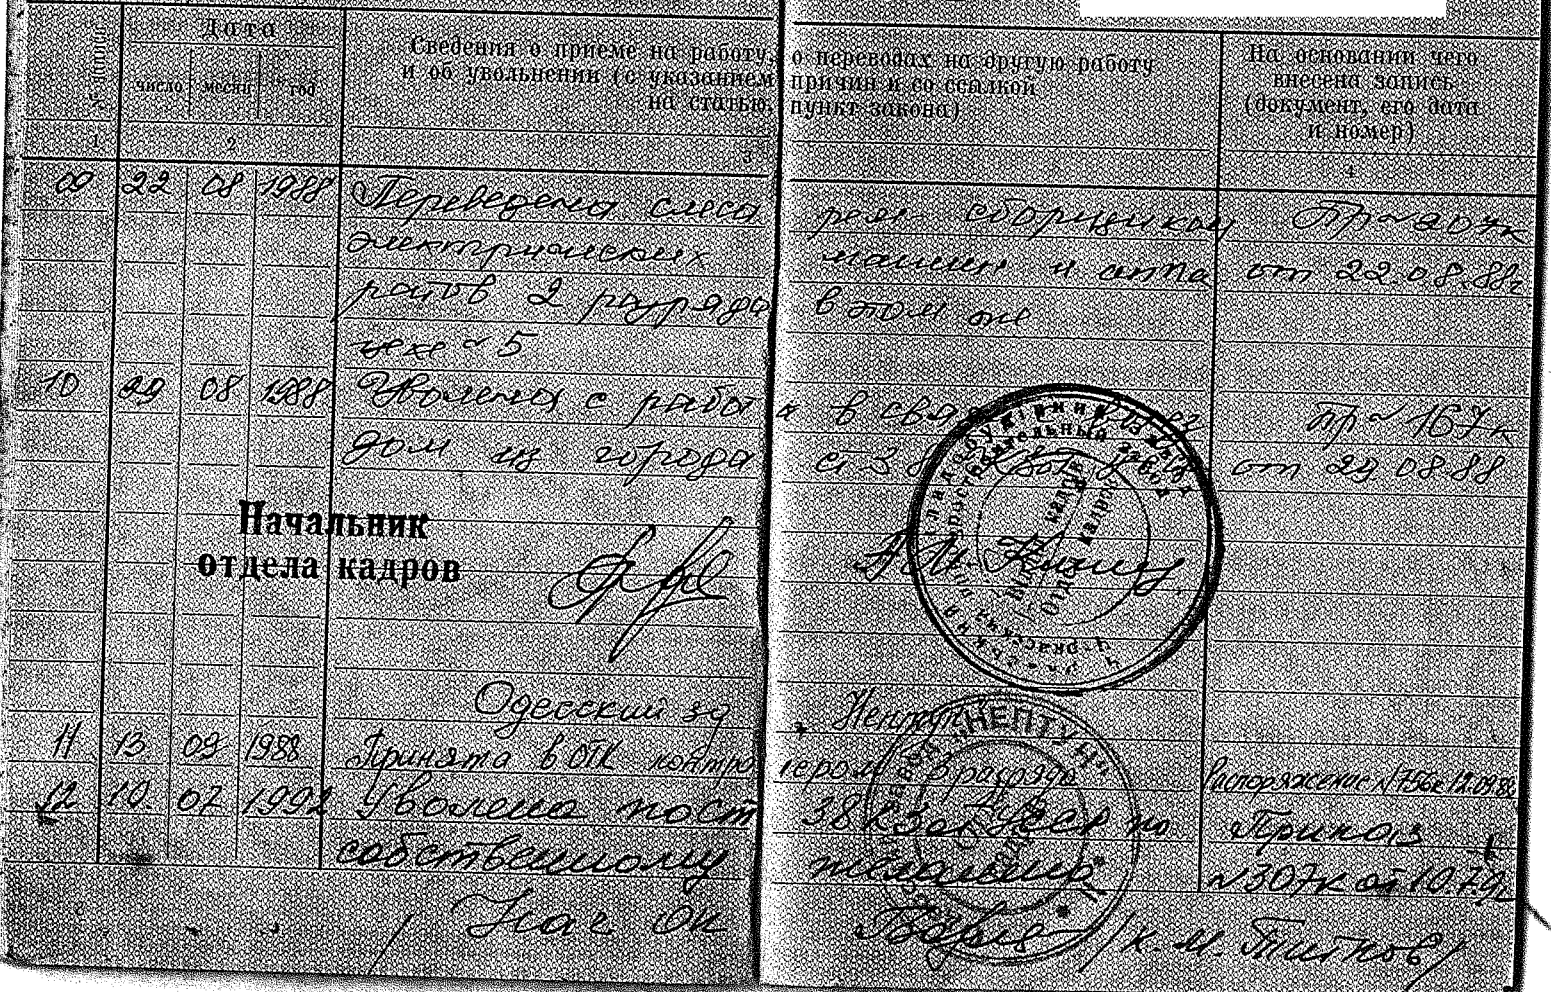 Дата
Сведения о приеме на работу, о переводах на другую работу
и об увольнении (с указанием причин и со ссылкой
на статью, пункт закона)
На основании чего
внесена запись
(документ, его дата
и номер)
№ записи
число месяц год
1 2 3 4
09 22 08 1988 Переведена слеса рем сборщиком Пр ~ 207к
электрических машин и аппа от 22.08.88г
ратов 2 разряда в том же
цехе ~ 5
10 29 08 1988 Уволена с работ ы в связи Пр ~ 167к
дом из города ст 38 от 29.08.88
Начальник
отдела кадров
Одесский з-д "Нептун"
НЕПТУН
11 13 09 1988 Принята в ОТК контро лером разряда Распоряжение N 756к 12.09.88
12 10. 07 1992 Уволена по ст 38 КЗоТ УССР по Приказ
собственному желанию N 307к от 10.7.92
Нач. ОК /К. М. Титков/